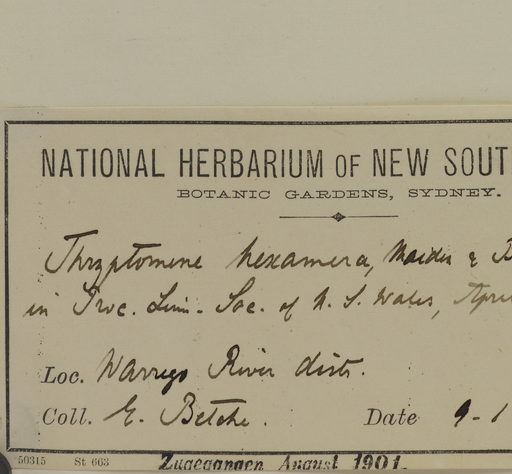 NATIONAL HERBARIUM OF NEW SOUT
BOTANIC GARDENS, SYDNEY.
Thryptomene hexamera, Maiden & B
in Proc. Linn. Soc. of N. S. Wales, Apri
Loc. Warrego River distr.
Coll. E. Betche. Date 9-1
50315 St 663 Zugegangen August 1901.